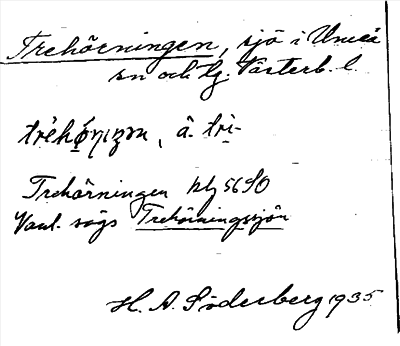 Trehörningen, sjö i Umeå
sn och lg. Västerb. l.
â. tri-
Trehörningen blj 56 SO
Vanl. sägs Trehörningssjön
H. A. Söderberg 1935